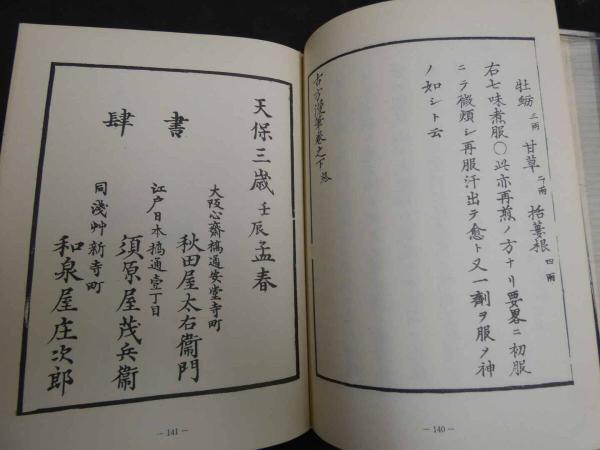 牡蛎 二両 甘草 二両 括蔞根 四両
右七味煮服〇此亦再煎ノ方ナリ要畧ニ初服
ニテ微煩シ再服汗出テ愈ト又一劑ヲ服ヲ神
ノ如シト云
古方漫筆卷之下終
— 140 —
天保三歳壬辰孟春
書肆
大阪心齋橋通安堂寺町
秋田屋太右衞門
江戸日本橋通壹丁目
須原屋茂兵衞
同淺艸新寺町
和泉屋庄次郎
— 141 —